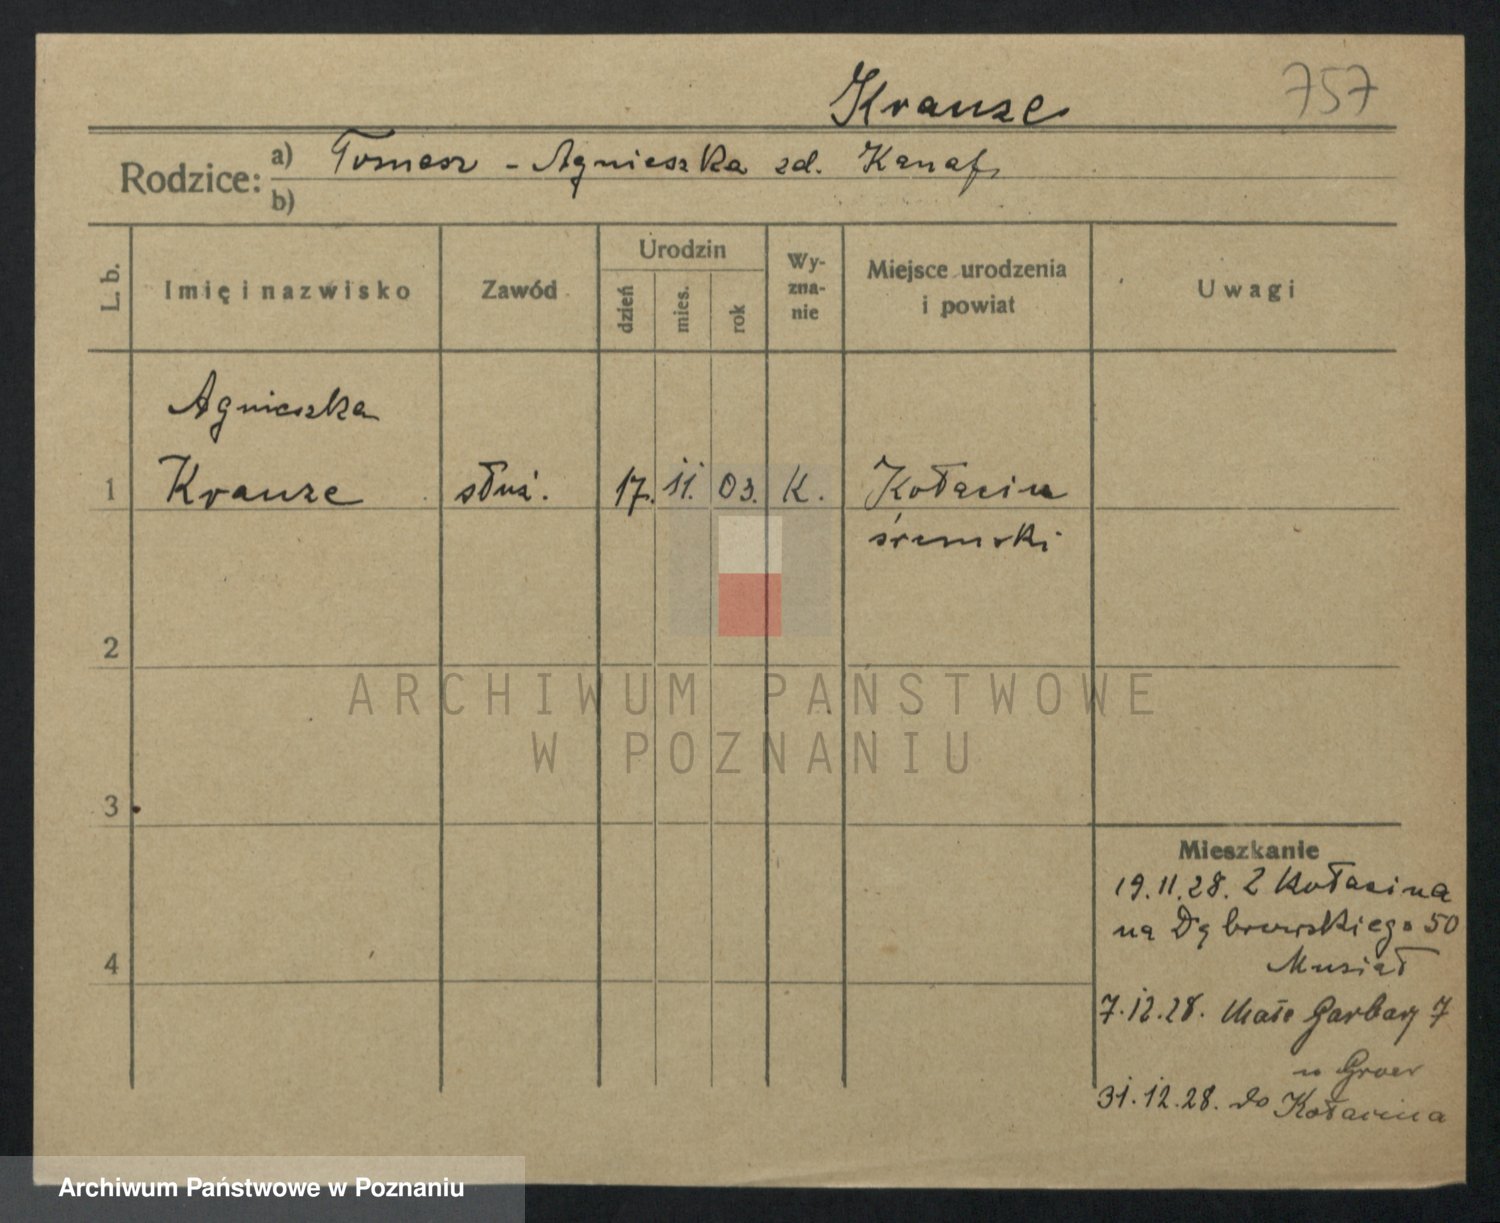 Krauze 757
Rodzice: a) Tomasz - Agnieszka zd. Kanaf
b)
L. b. Imię i nazwisko Zawód Urodzin dzień mies. rok Wyznanie Miejsce urodzenia i powiat Uwagi
Agnieszka
1 Krauze służ. 17. 11. 03. K. Kołacin
śremski
2
3
4
Mieszkanie
19.11.28. Z Kołacina
na Dąbrowskiego 50
Musiał
7.12.28. Małe Garbary 7
u Groer
31.12.28. do Kołacina
ARCHIWUM PAŃSTWOWE
W POZNANIU
Archiwum Państwowe w Poznaniu